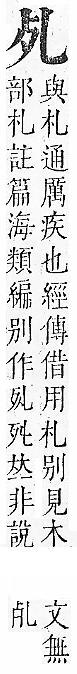 與札通厲疾也經傳借用札別見木
部札註篇海類編別作非說
文無